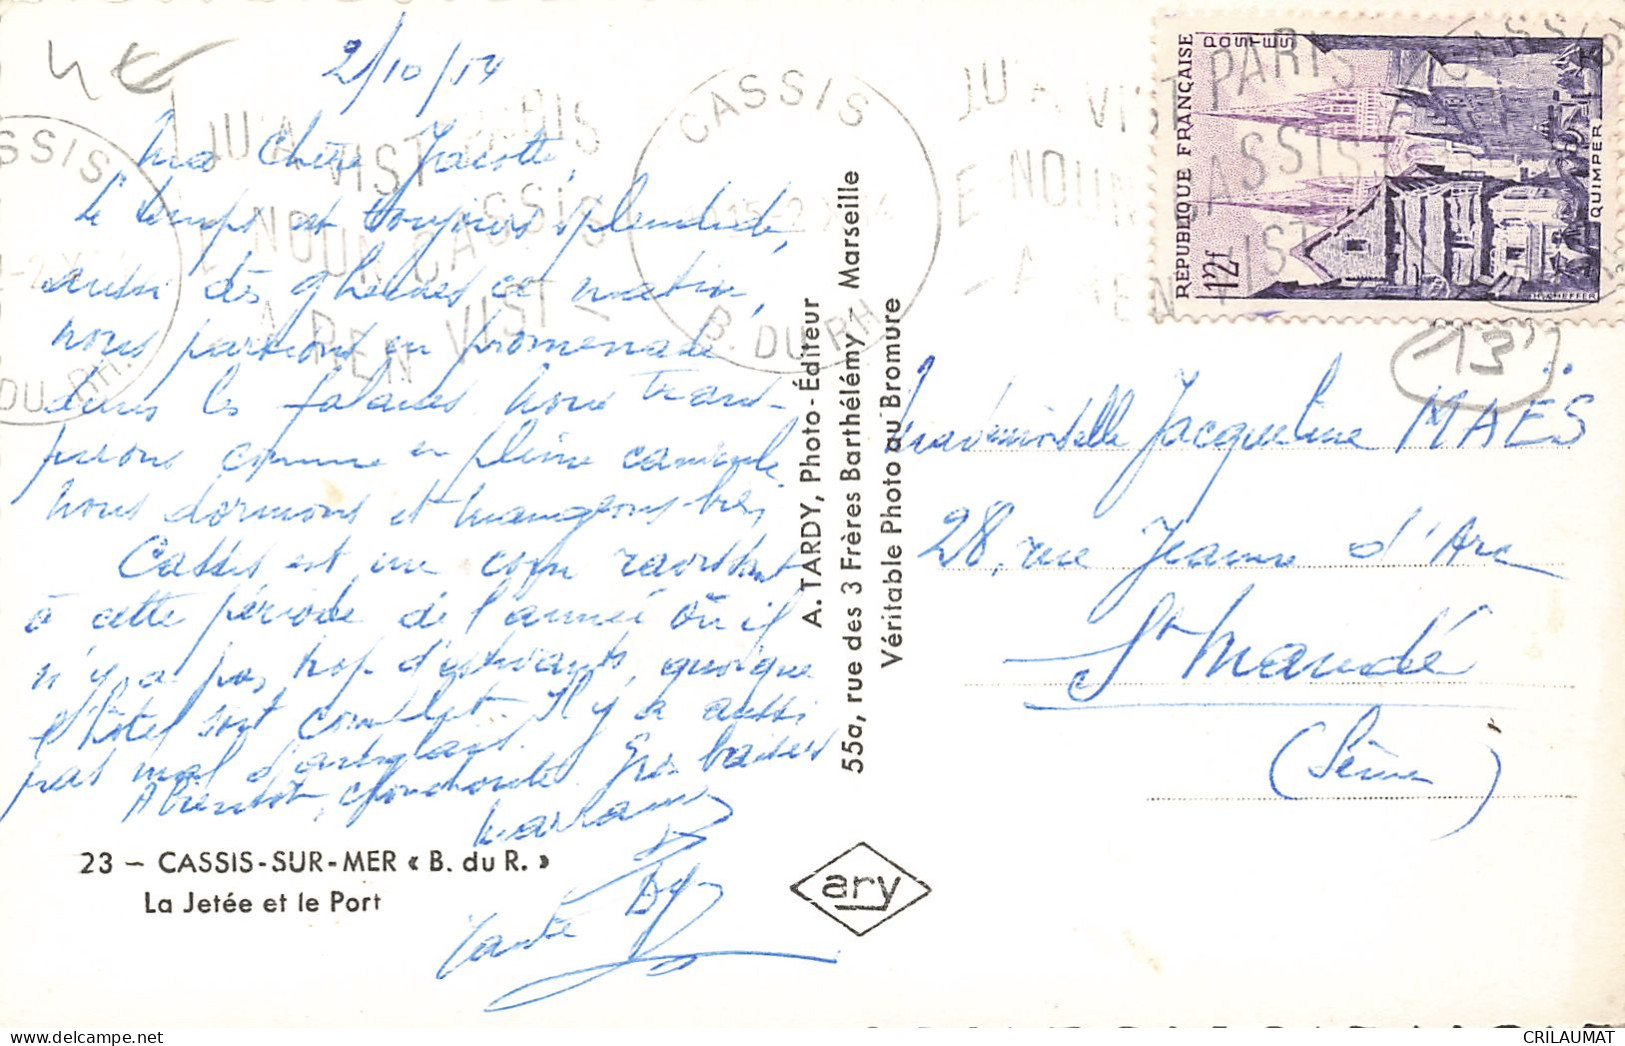 4€
2/10/54
Ma Chère Jacotte,
le temps est toujours splendide,
aussi dès 9 heures ce matin,
nous partions en promenade
dans les falaises. Nous trans-
pirons comme en pleine canicule
Nous dormons et mangeons bien
Cassis est un coin ravissant
à cette période de l'année où il
n'y a pas trop d'estivants, quoique
l'hôtel soit complet. Il y a aussi
pas mal d'anglais.
A bientôt, chouchoute. Gros baisers
Tante
23 - CASSIS-SUR-MER « B. du R. »
La Jetée et le Port
A. TARDY, Photo-Éditeur
55a, rue des 3 Frères Barthélémy - Marseille
Véritable Photo au Bromure
ary
CASSIS
B. DU RH.
QU'A VIST PARIS
E NOUN CASSIS
A REN VIST
RÉPUBLIQUE FRANÇAISE
POSTES
12f
QUIMPER
H. CHEFFER
13
Mademoiselle Jacqueline MAËS
28, rue Jeanne d'Arc
St Mandé
(Seine)
CRILAUMAT